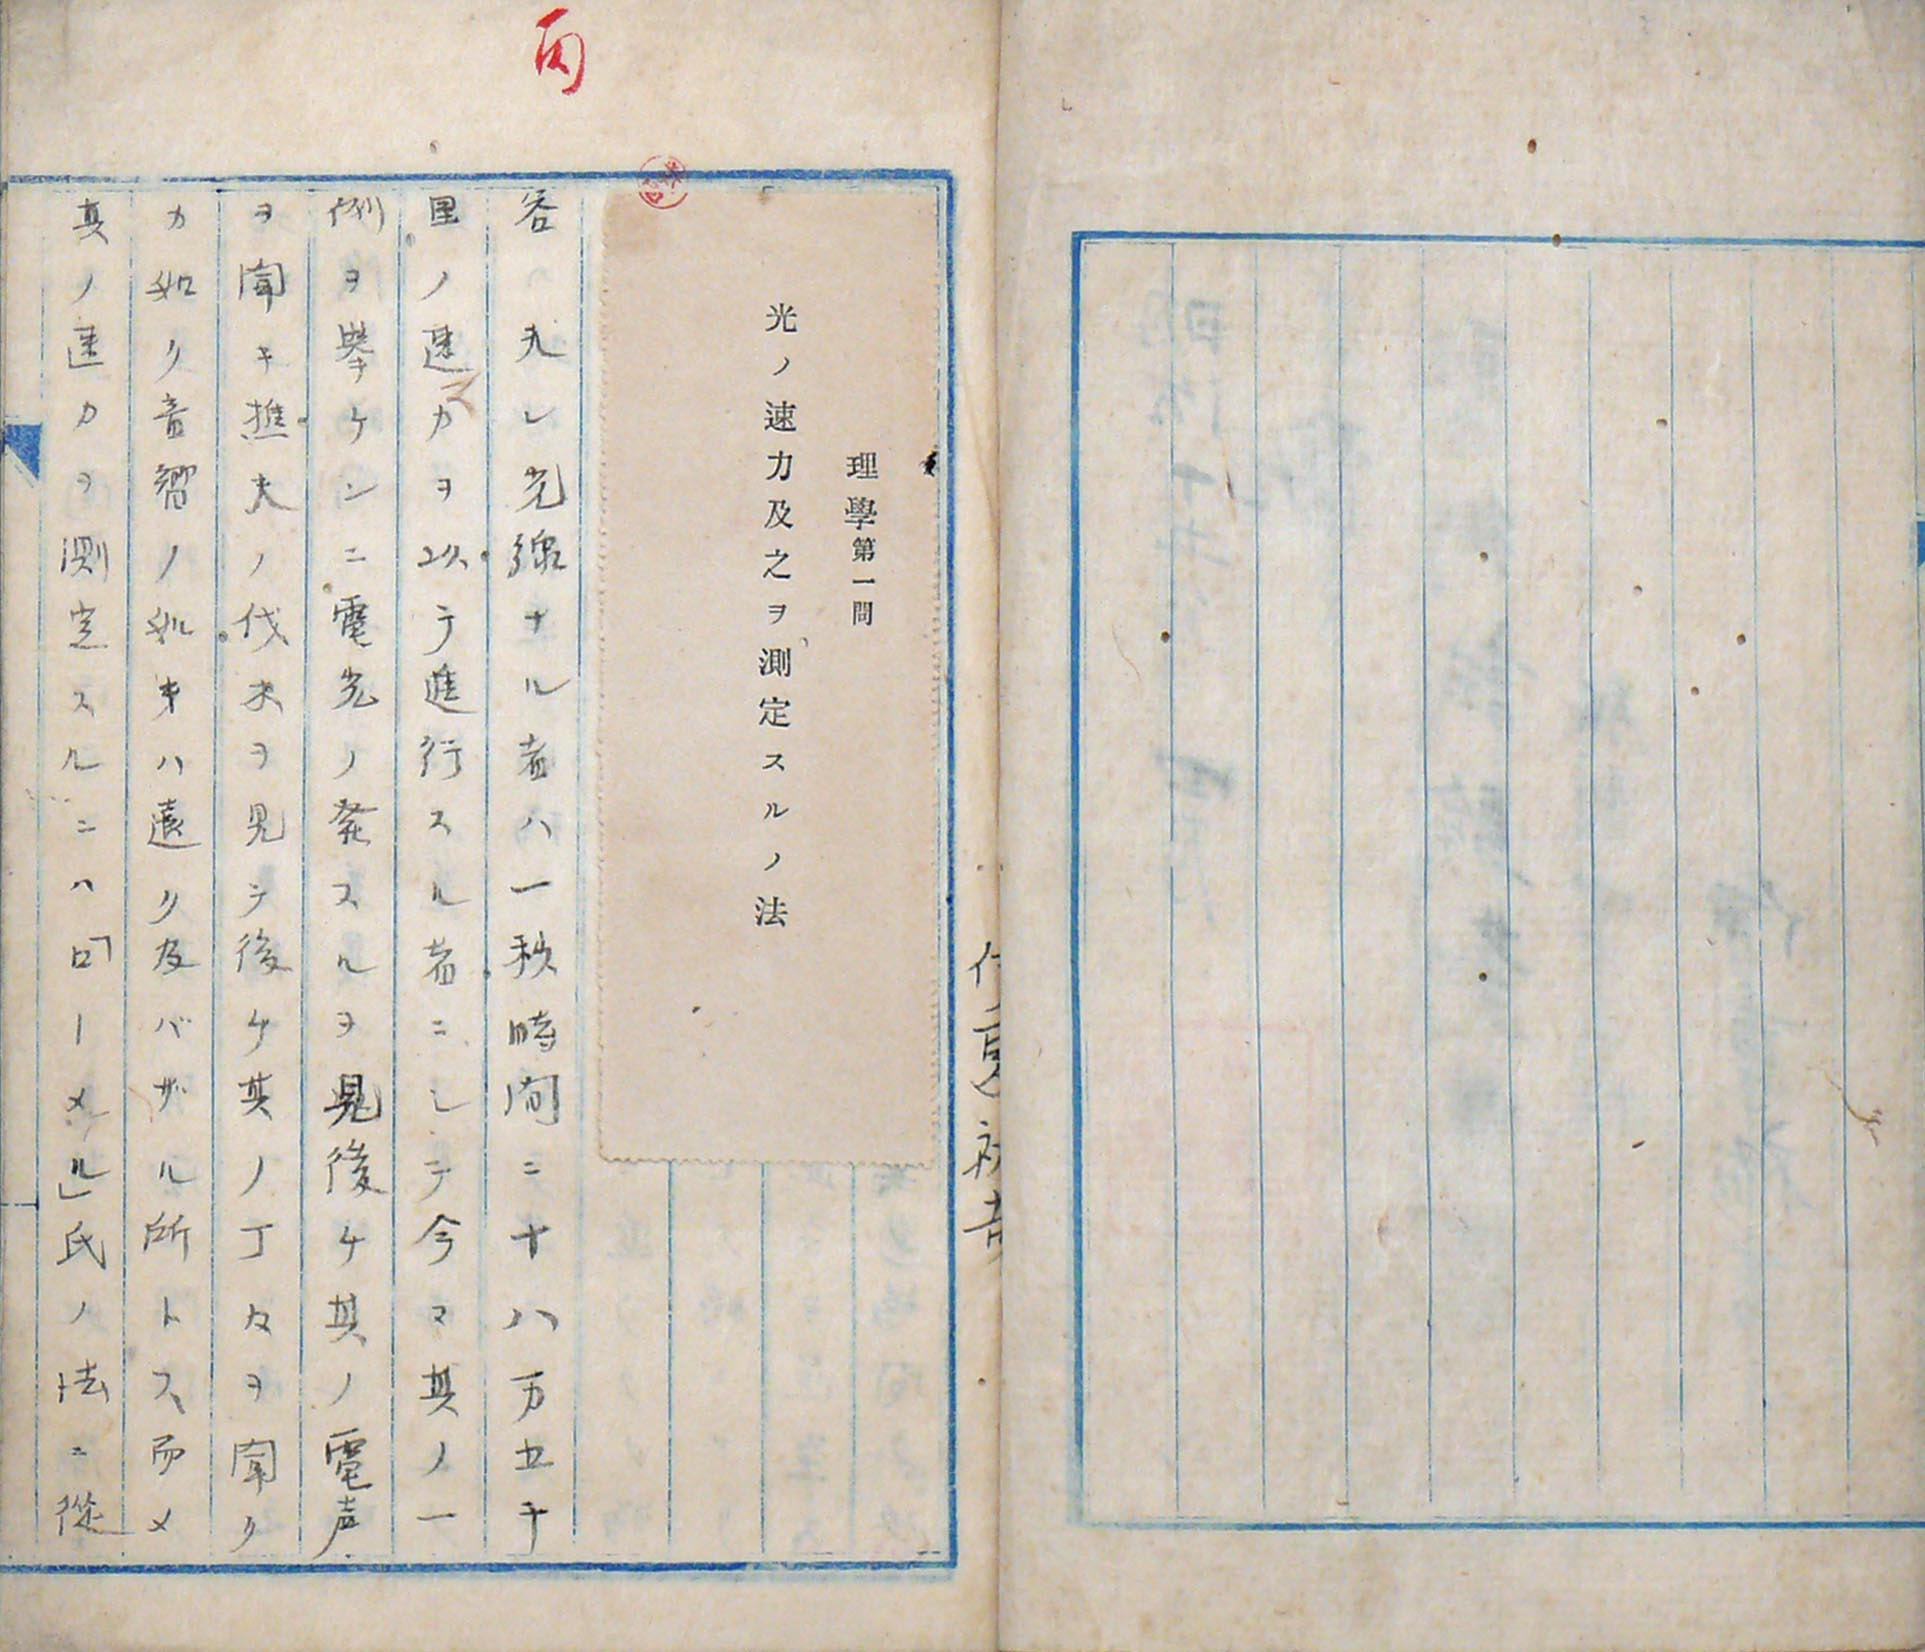 丙
理學第一問
光ノ速力及之ヲ測定スルノ法
答 夫レ光線ナル者ハ一秒時間ニ十八万五千
里ノ速カヲ以テ進行スル者ニシテ今マ其ノ一
例ヲ挙ケンニ電光ノ発スルヲ見後ケ其ノ電声
ヲ聞キ樵夫ノ伐木ヲ見テ後ケ其ノ丁々ヲ聞ク
カ如ク音響ノ如キハ遠ク及バザル所トス而メ
其ノ速力ヲ測定スルニハ「ローメル」氏ノ法ニ從